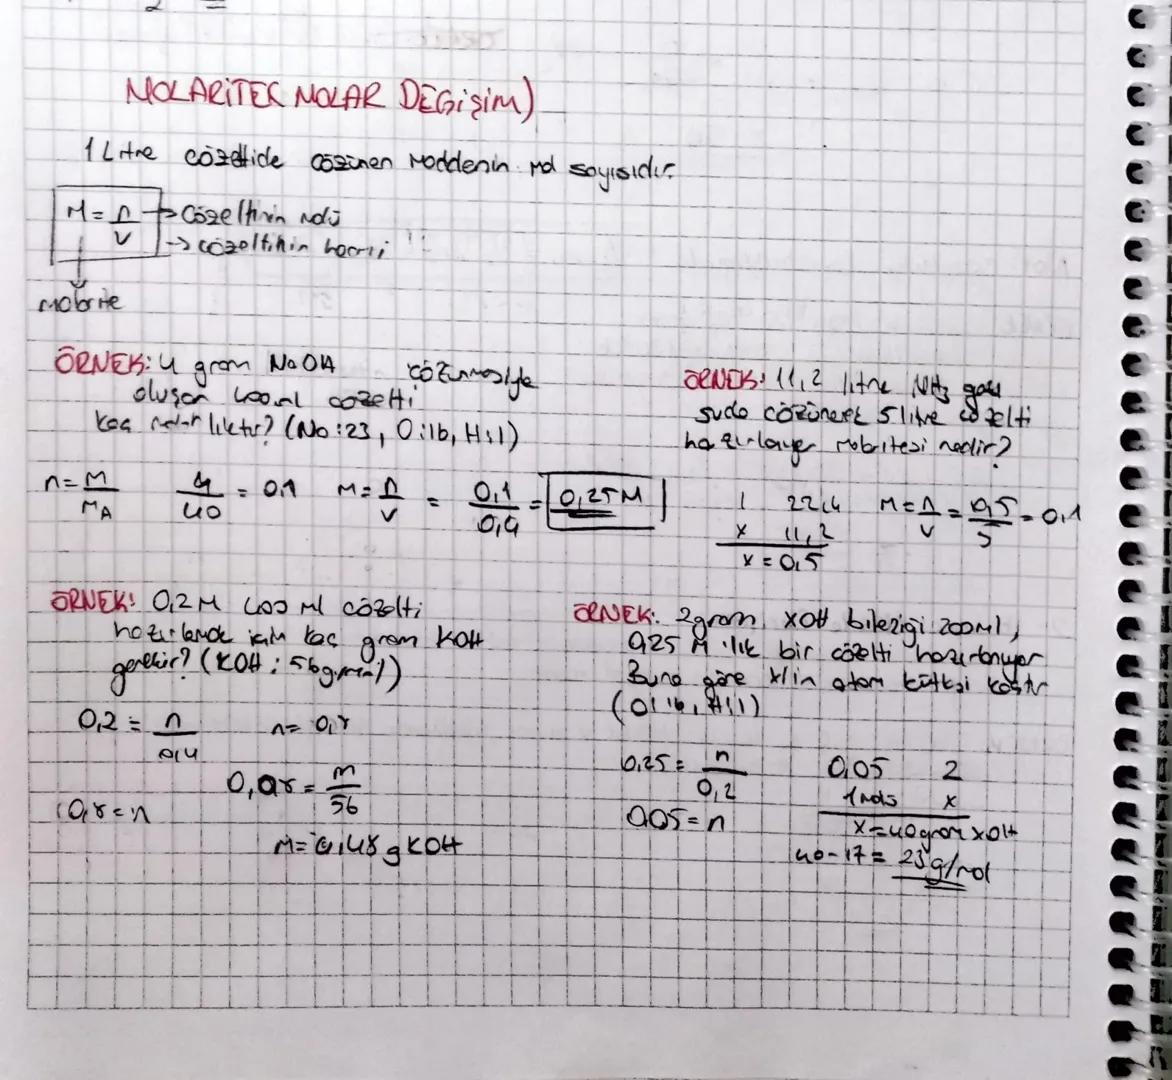 2 =
MOLARİTE( MOLAR DEĞİŞİM)
1 Litre çözeltide çözünen maddenin mol sayısıdır.
M = n → çözeltinin molü
V → çözeltinin hacmi !!
Molarite
ÖRNEK: 4 gram NaOH çözünmesiyle
oluşan 400 ml çözelti
kaç molarliktir? (Na:23, O:16, H:1)
n = M / MA 4 / 40 = 0,1 M = n / V = 0,1 / 0,4 = 0,25 M
ÖRNEK: 11,2 litre NH3 gazı
suda çözünerek 5 litre çözelti
hazırlanıyor molaritesi nedir?
1 22,4 M = n / V = 0,5 / 5 = 0,1
x 11,2
x = 0,5
ÖRNEK: 0,2 M 400 ml çözelti
hazırlamak için kaç gram KOH
gerekir? (KOH : 56 g/mol)
0,2 = n / 0,4
n =
= m / 56
= n
g KOH
ÖRNEK: 2 gram XOH bileşiği 200 ml,
0,25 M 'lık bir çözelti hazırlanıyor
Buna göre X'in atom kütlesi kaçtır
(O:16, H:1)
0,25 = n / 0,2 0,05 2
0,05 = n 1 mols x
x = 40 gram XOH
40 - 17 = 23 g/mol